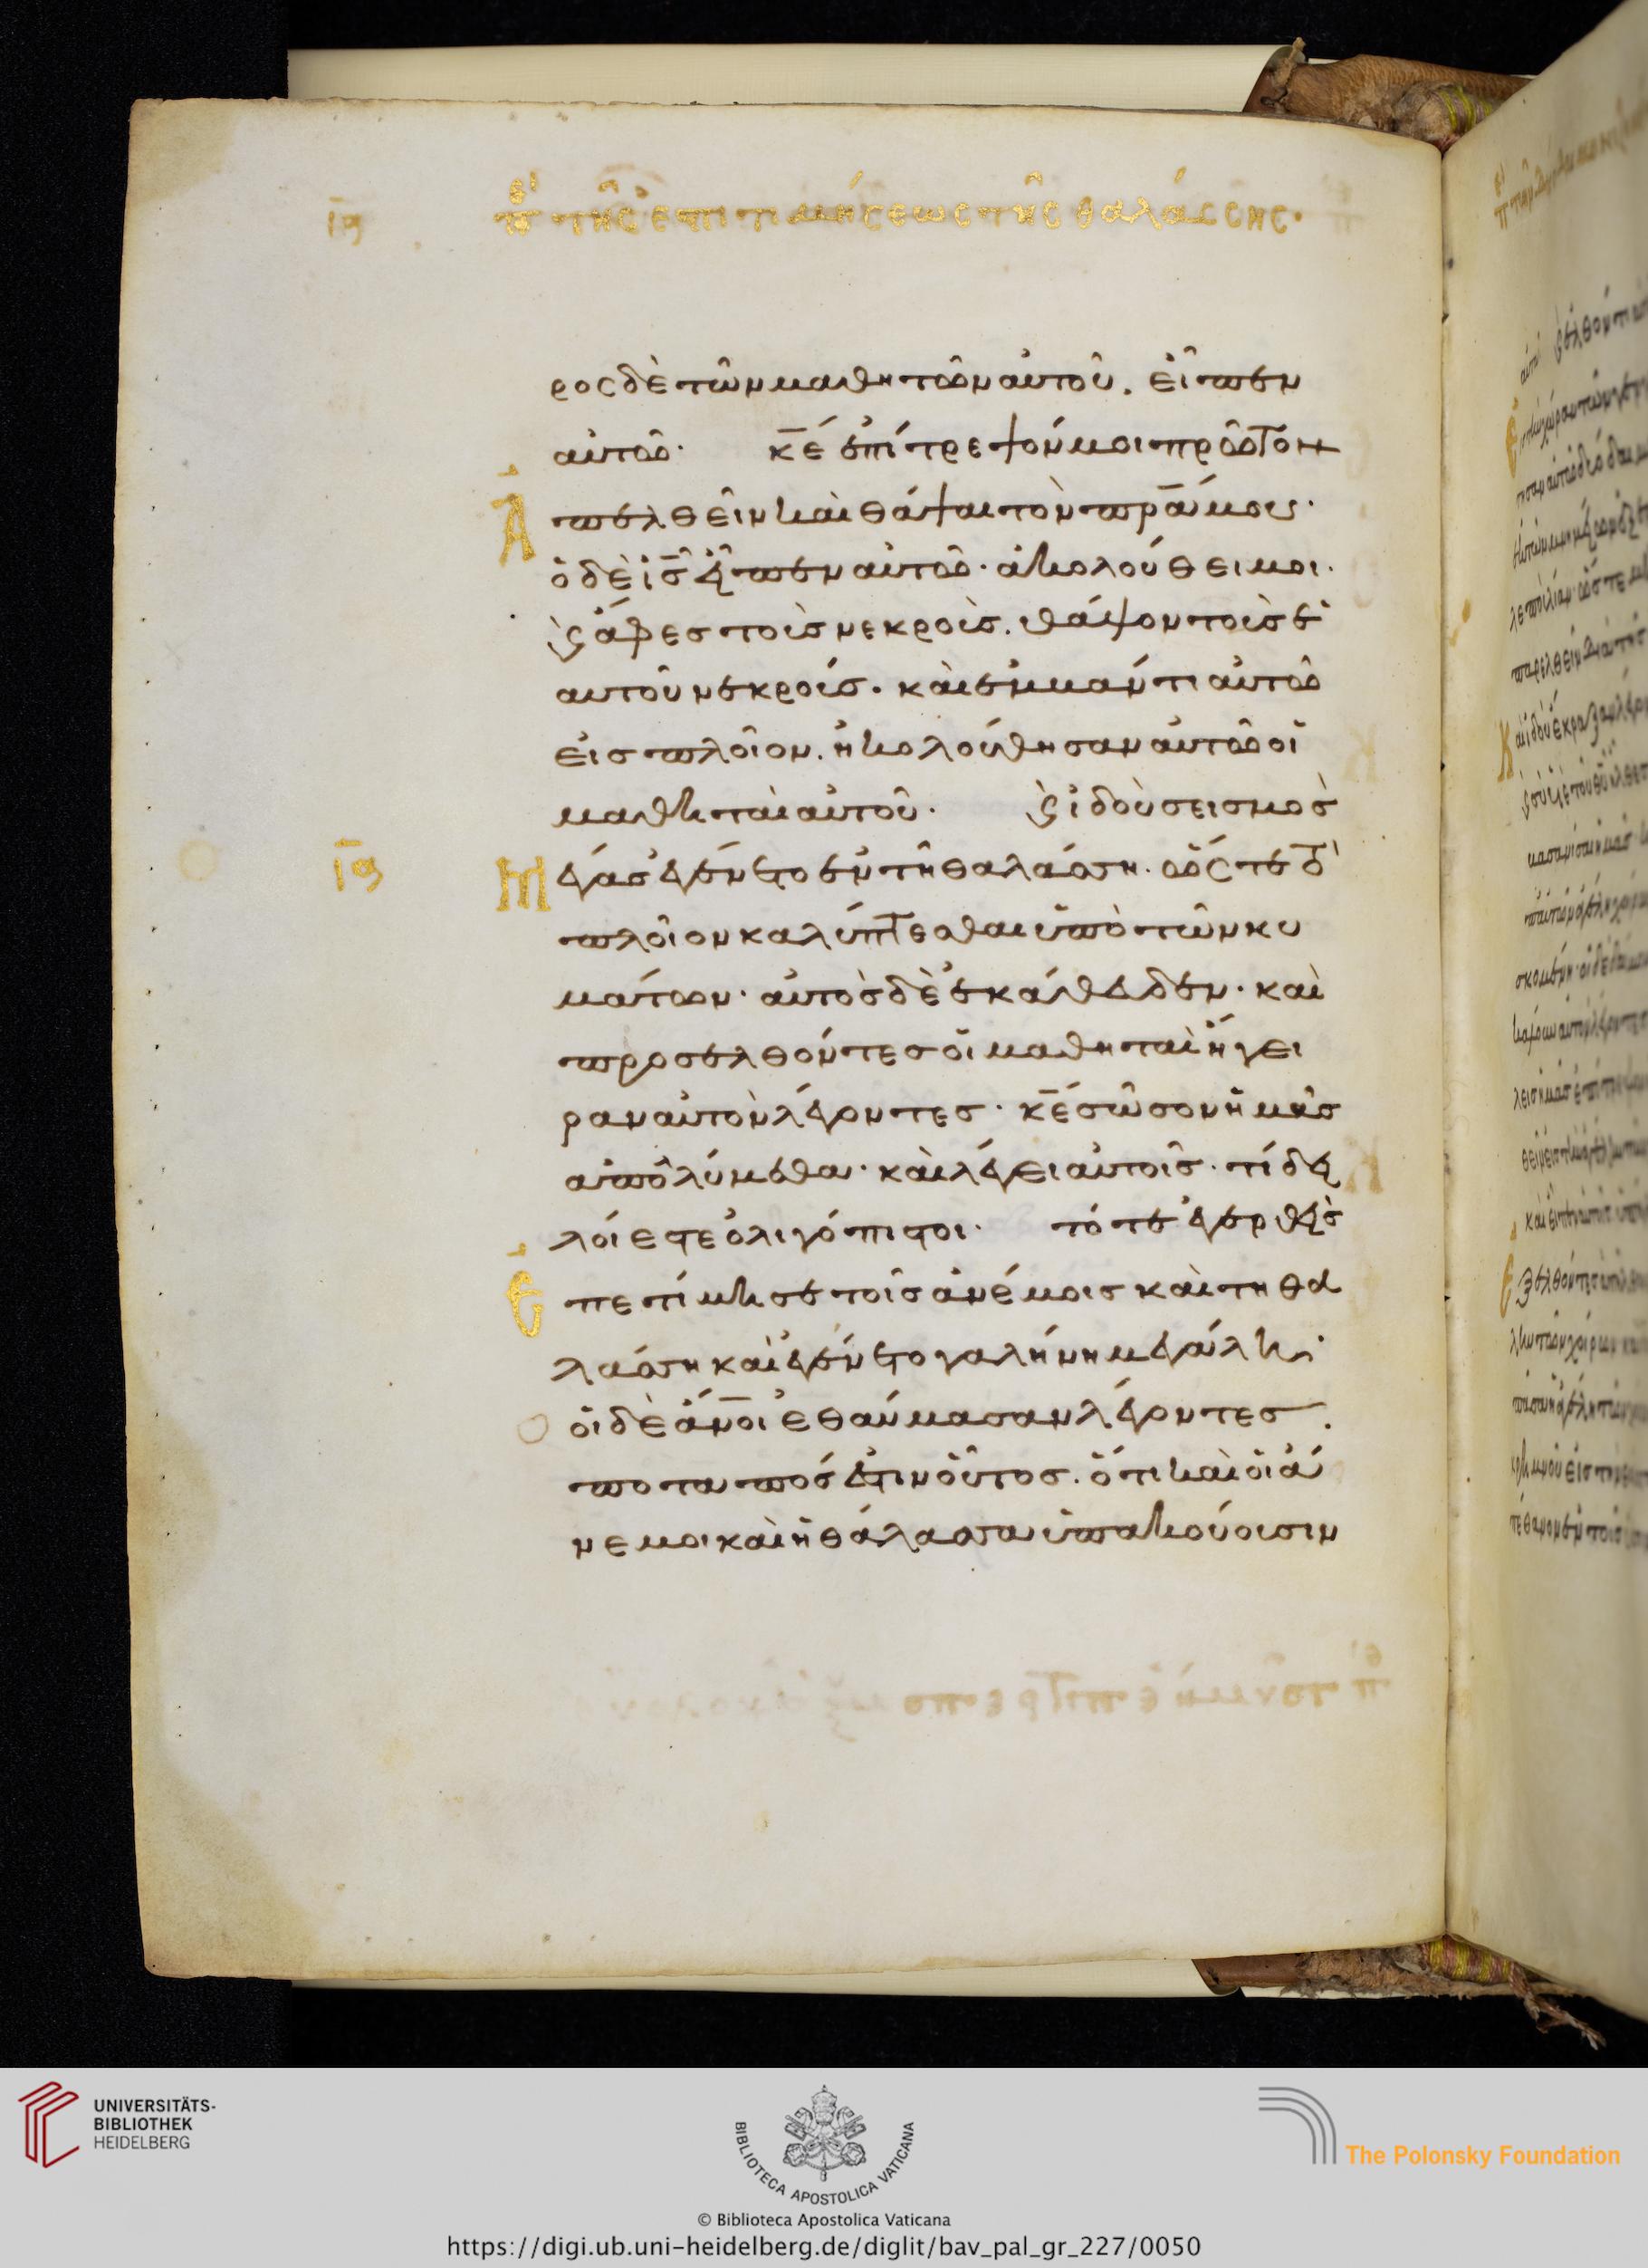 ιγ π̅ε̅ τῆς ἐπιτιμήσεως τῆς θαλάσσης·
ρος δὲ τῶν μαθητῶν αὐτοῦ. εἶπεν
αὐτῶ· κ̅ε̅ ἐπίτρεψόν μοι πρῶτον
Ἀπελθεῖν καὶ θάψαι τὸν π̅ρ̅α̅ μου·
ὁ δὲ ι̅ς̅ εἶπεν αὐτῶ· ἀκολούθει μοι.
ϗ ἄφες τοὺς νεκροὺς. θάψον τοὺς ἑ
αυτῶν νεκρούς. καὶ ἐμβάντι αὐτῶ
εἰς πλοῖον. ἠκολούθησαν αὐτῶ οἱ
μαθηταὶ αὐτοῦ. ϗ ἰδοὺ σεισμὸς
ιγ Μέγας ἐγένετο ἐν τῆ θαλάσση. ὥστε τὸ
πλοῖον καλύπτεσθαι ὑπὸ τῶν κυ
μάτων· αὐτὸς δὲ ἐκάθευδεν. καὶ
προσελθόντες οἱ μαθηταὶ ἤγει
ραν αὐτὸν λέγοντες. κ̅ε̅ σῶσον ἡμᾶς
ἀπολύμεθα. καὶ λέγει αὐτοῖς. τί δει
λοί εστε ὀλιγόπιστοι. τότε ἐγερθεὶς
Ἐπετίμησε τοῖς ἀνέμοις καὶ τῆ θα
λάσση καὶ ἐγένετο γαλήνη μεγάλη.
οἱ δὲ ἄ̅ν̅ο̅ι̅ ἐθαύμασαν λέγοντες.
ποταπός ἐστιν οὗτος. ὅτι καὶ οἱ ἄ
νεμοι καὶ ἡ θάλασσα ὑπακούουσιν
UNIVERSITÄTS-
BIBLIOTHEK
HEIDELBERG
BIBLIOTECA APOSTOLICA VATICANA
The Polonsky Foundation
© Biblioteca Apostolica Vaticana
https://digi.ub.uni-heidelberg.de/diglit/bav_pal_gr_227/0050